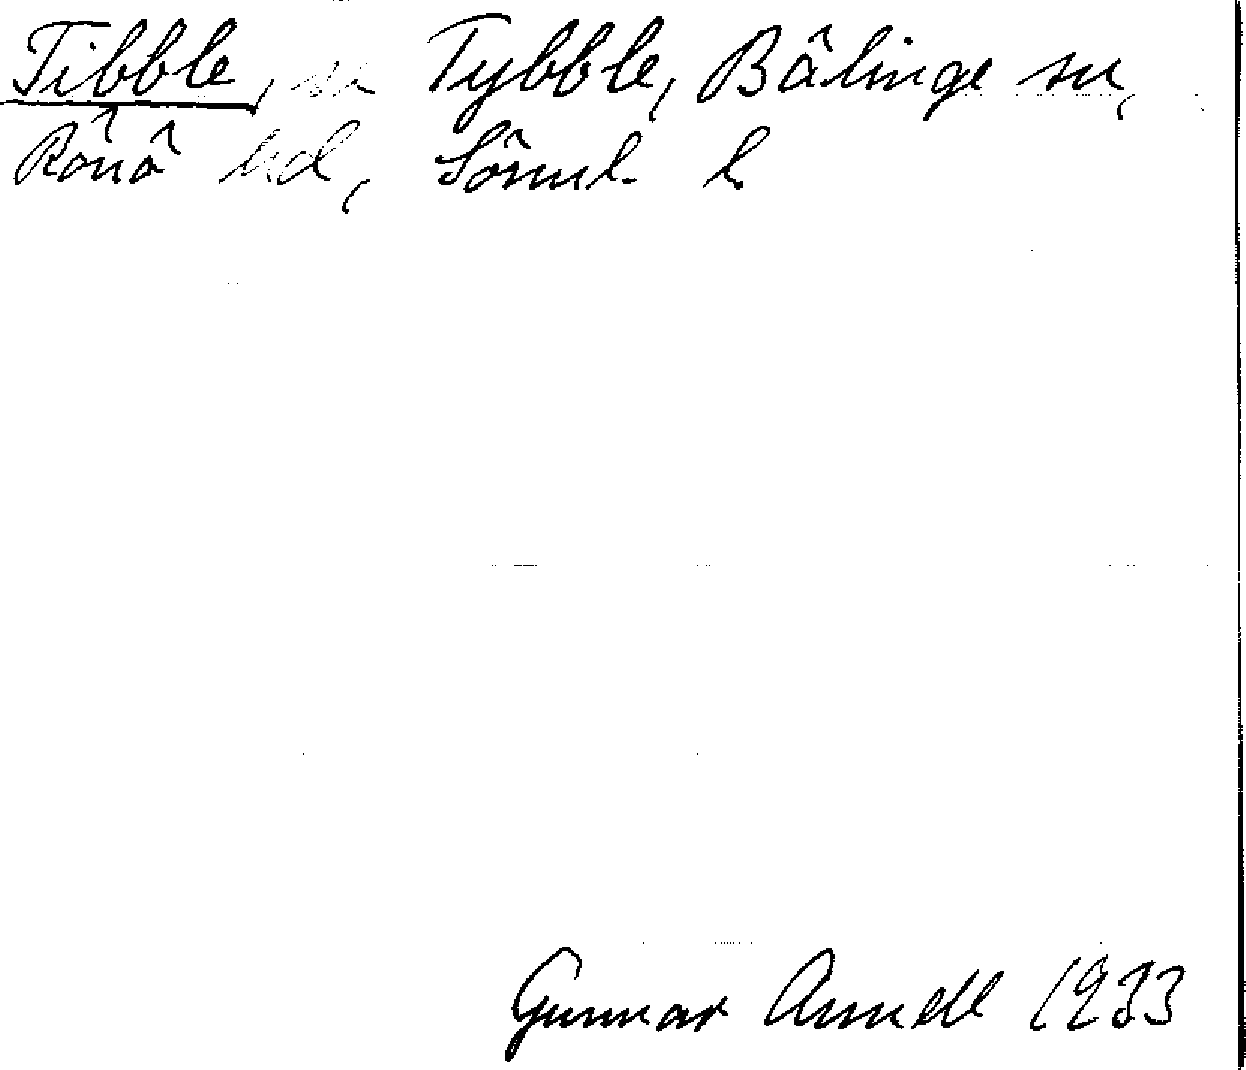 Tibble, se Tybble, Bälinge sn,
Rönö hd, Sörml. l.
Gunnar Arnell 1933